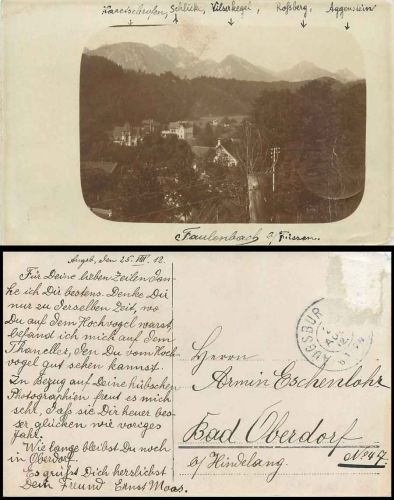 Schlicke, Vilserkegel, Roßberg, Aggenstein
Faulenbach b/ Füssen.
Augsb., den 25. VIII. 12.
Für Deine lieben Zeilen dan-
ke ich Dir bestens. Denke Dir
nur zu derselben Zeit, wo
Du auf dem Hochvogel warst,
befand ich mich auf dem
Thaneller, den Du vom Hoch-
vogel gut sehen kannst.
In Bezug auf Deine hübschen
Photographien freut es mich
sehr, daß sie Dir heuer bes-
ser glücken wie voriges
Jahr.
Wie lange bleibst Du noch
in Oberdorf.
Es grüßt Dich herzlichst
Dein Freund Ernst Moos.
AUGSBURG
AUG
12
Herrn
Armin Eschenlohr
Bad Oberdorf
b/ Hindelang.
No 47.